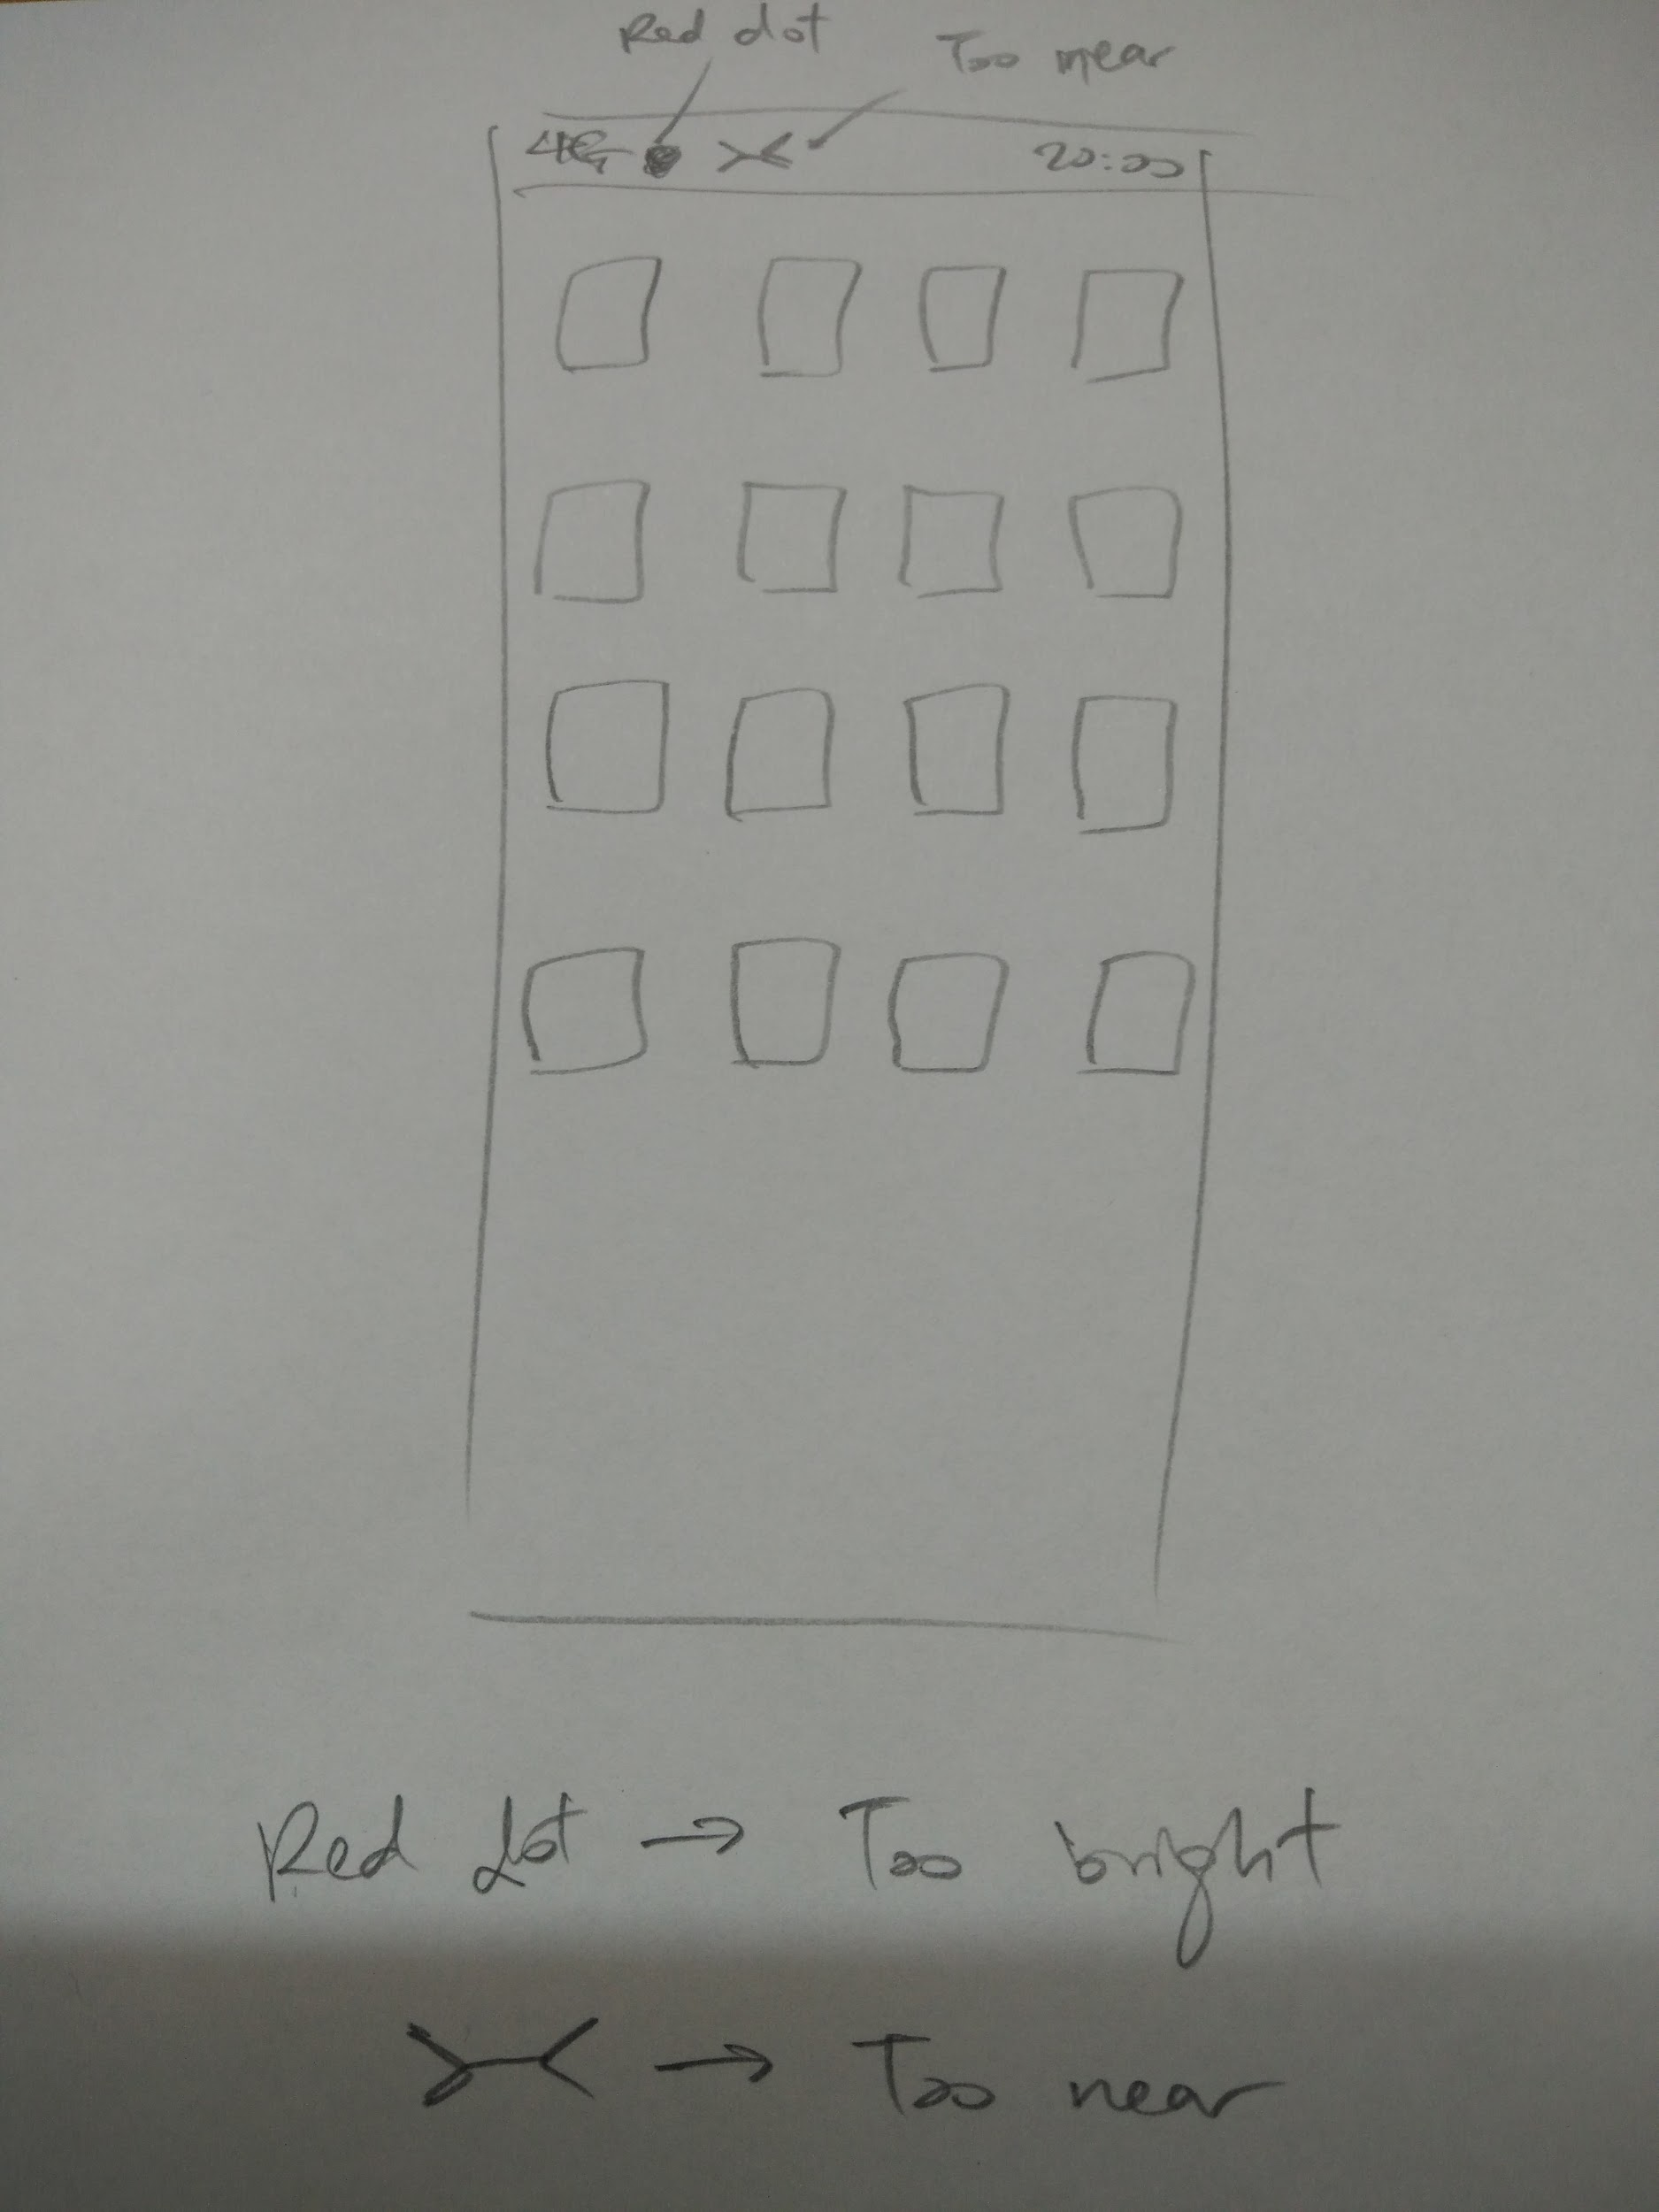 Red dot
Too near
4G 20:00
Red dot → Too bright
>-< → Too near